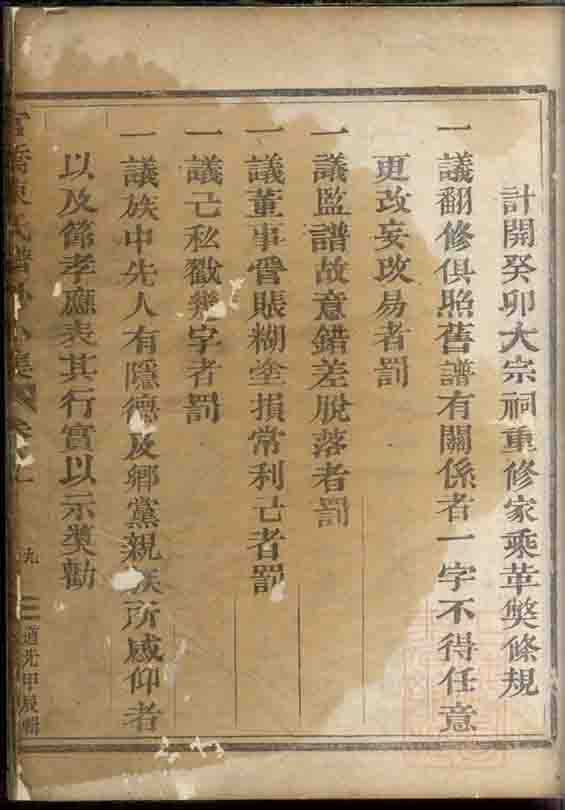 計開癸卯大宗祠重修家乘革獘條規
一議翻修俱照舊譜有關係者一字不得任意
更改妄改易者罰
一議監譜故意錯差脫落者罰
一議董事管賬糊塗損常利己者罰
一議己私戳幾字者罰
一議族中先人有隱德及鄉黨親族所感仰者
以及節孝應表其行實以示獎勸
橋陳氏譜
九
道光甲辰輯